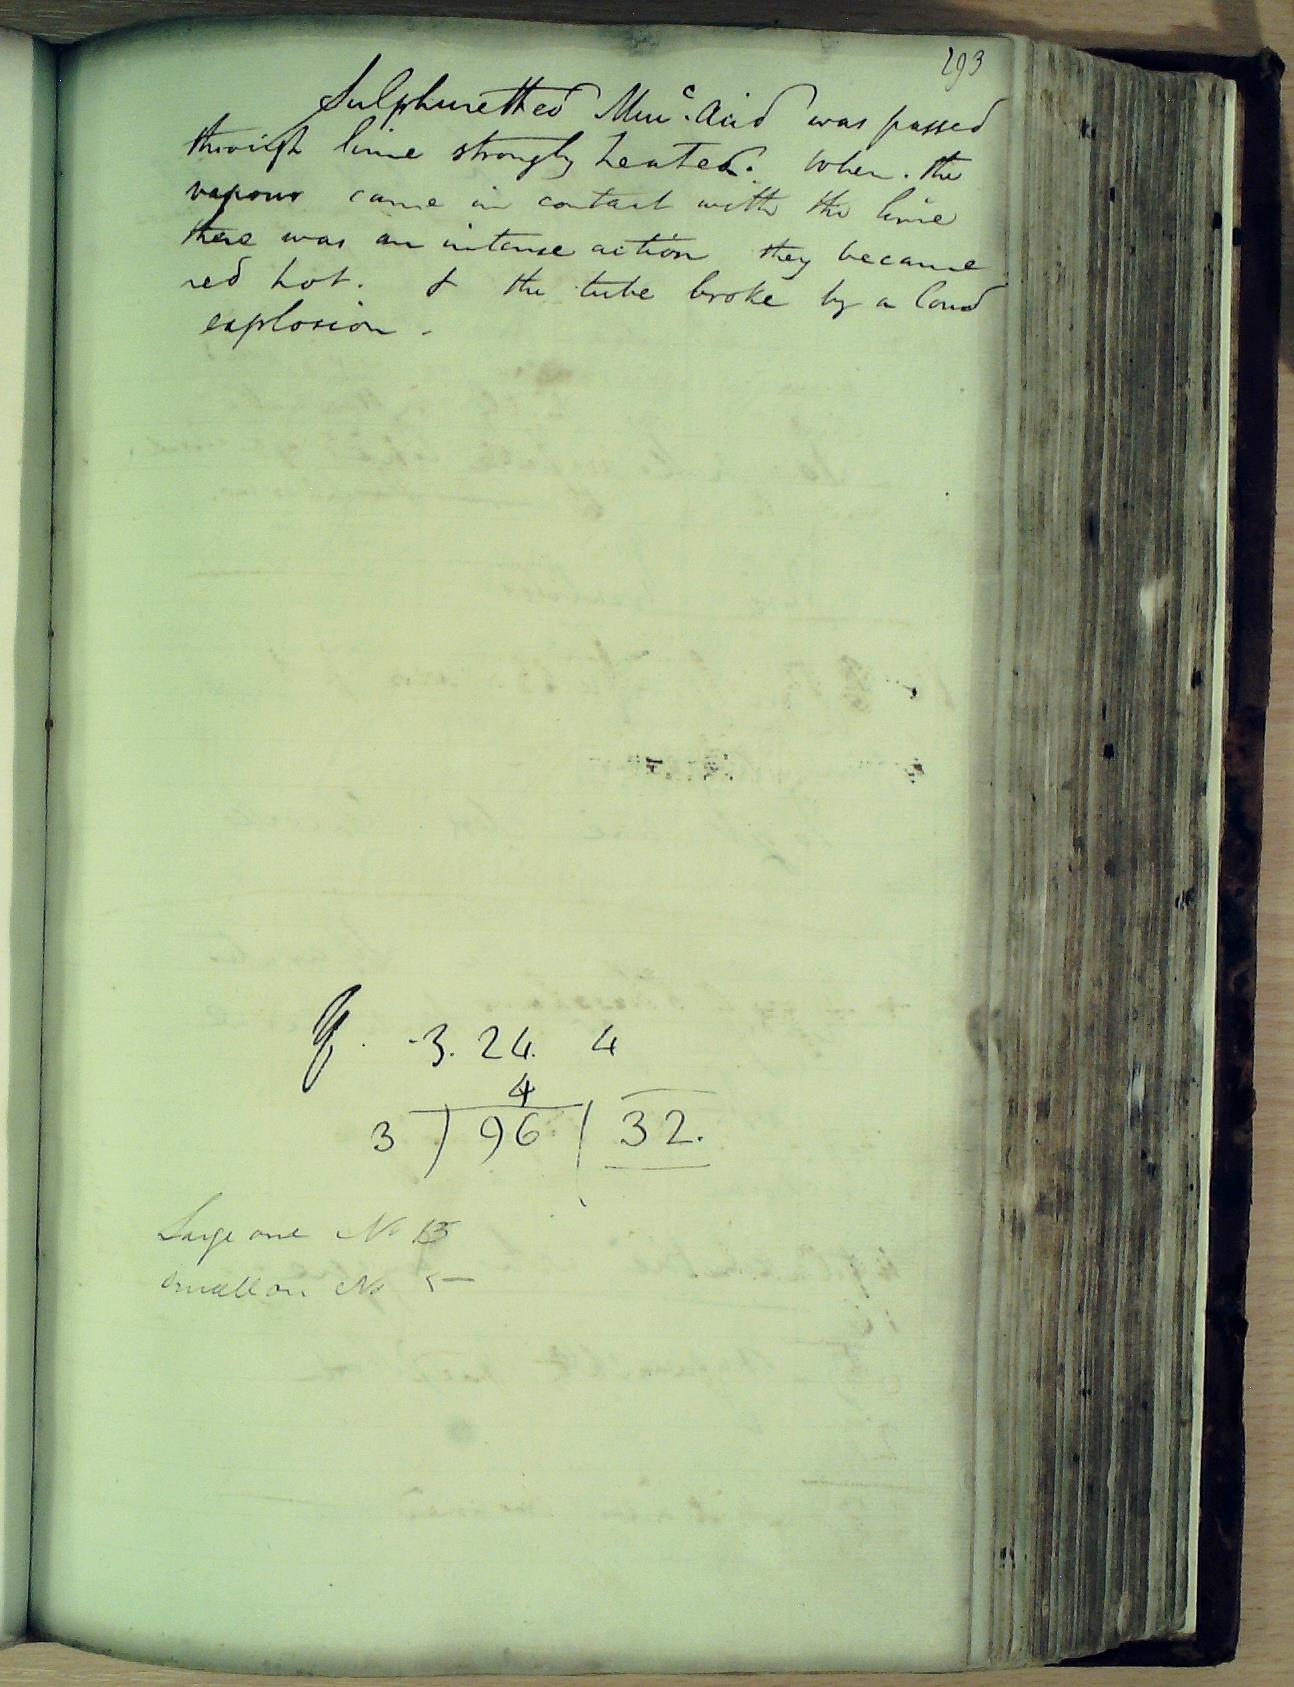 193
Sulphuretted Muc. Acid was passed
through lime strongly heated. When. the
vapour came in contact with the lime
there was an intense action they became
red hot. & the tube broke by a loud
explosion.
3. 24. 4
4
3 ) 96 ( 32.
Large one No 13
small on No 5